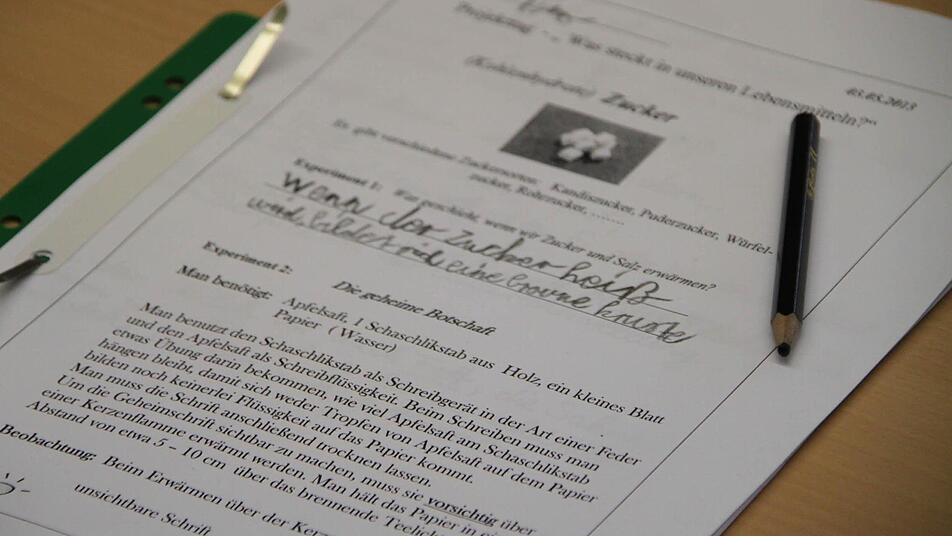 Projekttag - „Was steckt in unseren Lebensmitteln?“
03.05.2013
(Kohlenhydrate) Zucker
Es gibt verschiedene Zuckersorten: Kandiszucker, Puderzucker, Würfel-
zucker, Rohrzucker, .......
Experiment 1: Was geschieht, wenn wir Zucker und Salz erwärmen?
Wenn der Zucker heiß
wird, bildet sich eine braune kruste
Experiment 2:
Die geheime Botschaft
Man benötigt: Apfelsaft, 1 Schaschlikstab aus Holz, ein kleines Blatt
Papier (Wasser)
Man benutzt den Schaschlikstab als Schreibgerät in der Art einer Feder
und den Apfelsaft als Schreibflüssigkeit. Beim Schreiben muss man
etwas Übung darin bekommen, wie viel Apfelsaft am Schaschlikstab
hängen bleibt, damit sich weder Tropfen von Apfelsaft auf dem Papier
bilden noch keinerlei Flüssigkeit auf das Papier kommt.
Man muss die Schrift anschließend trocknen lassen.
Um die Geheimschrift sichtbar zu machen, muss sie vorsichtig über
einer Kerzenflamme erwärmt werden. Man hält das Papier in ei
Abstand von etwa 5 – 10 cm über das brennende Teelich
Beobachtung: Beim Erwärmen über der Kerz
unsichtbare Schrift